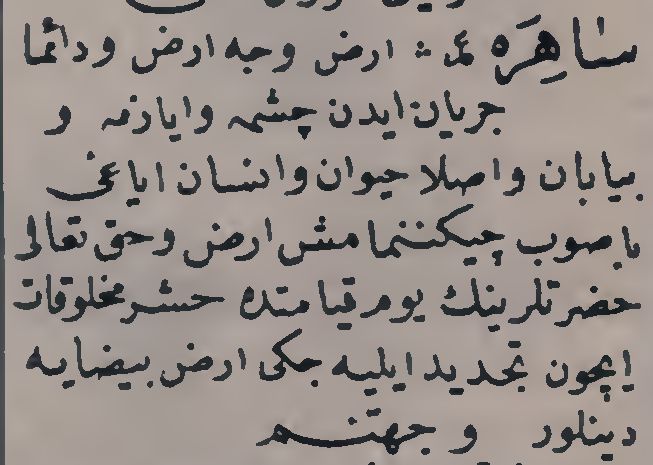 سَاهِرَه عر ∴ ارض وجه ارض ودائما
جريان ايدن چشمه وايازمه و
بيابان واصلا حيوان وانسان اياغى
باصوب چيكننمامش ارض وحق تعالى
حضرتلرينك يوم قيامتده حشر مخلوقات
ايچون تجديد ايليه جكى ارض بيضايه
دينلور و جهنم